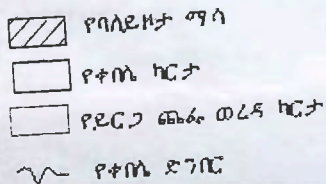 የባለይዞታ ማሳ
የቀበሌ ካርታ
የይርጋ ጨፌ ወረዳ ካርታ
የቀበሌ ድንበር